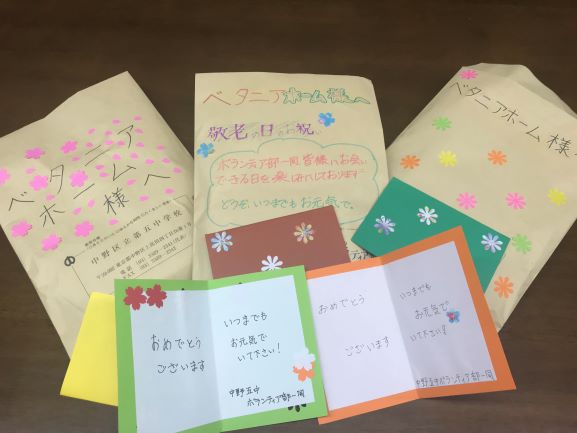 ベタニア
ホームへ
様
中野区立第五中学校
ベタニアホーム様へ
敬老の日のお祝
ボランティア部一同、皆様にお会い
できる日を楽しみにしております
どうぞ、いつまでもお元気で。
ベタニアホーム様
おめでとう
ございます
いつまでも
お元気で
いて下さい!
中野五中
ボランティア部一同
おめでとう
ございます
いつまでも
お元気で
いて下さい!
中野五中ボランティア部一同